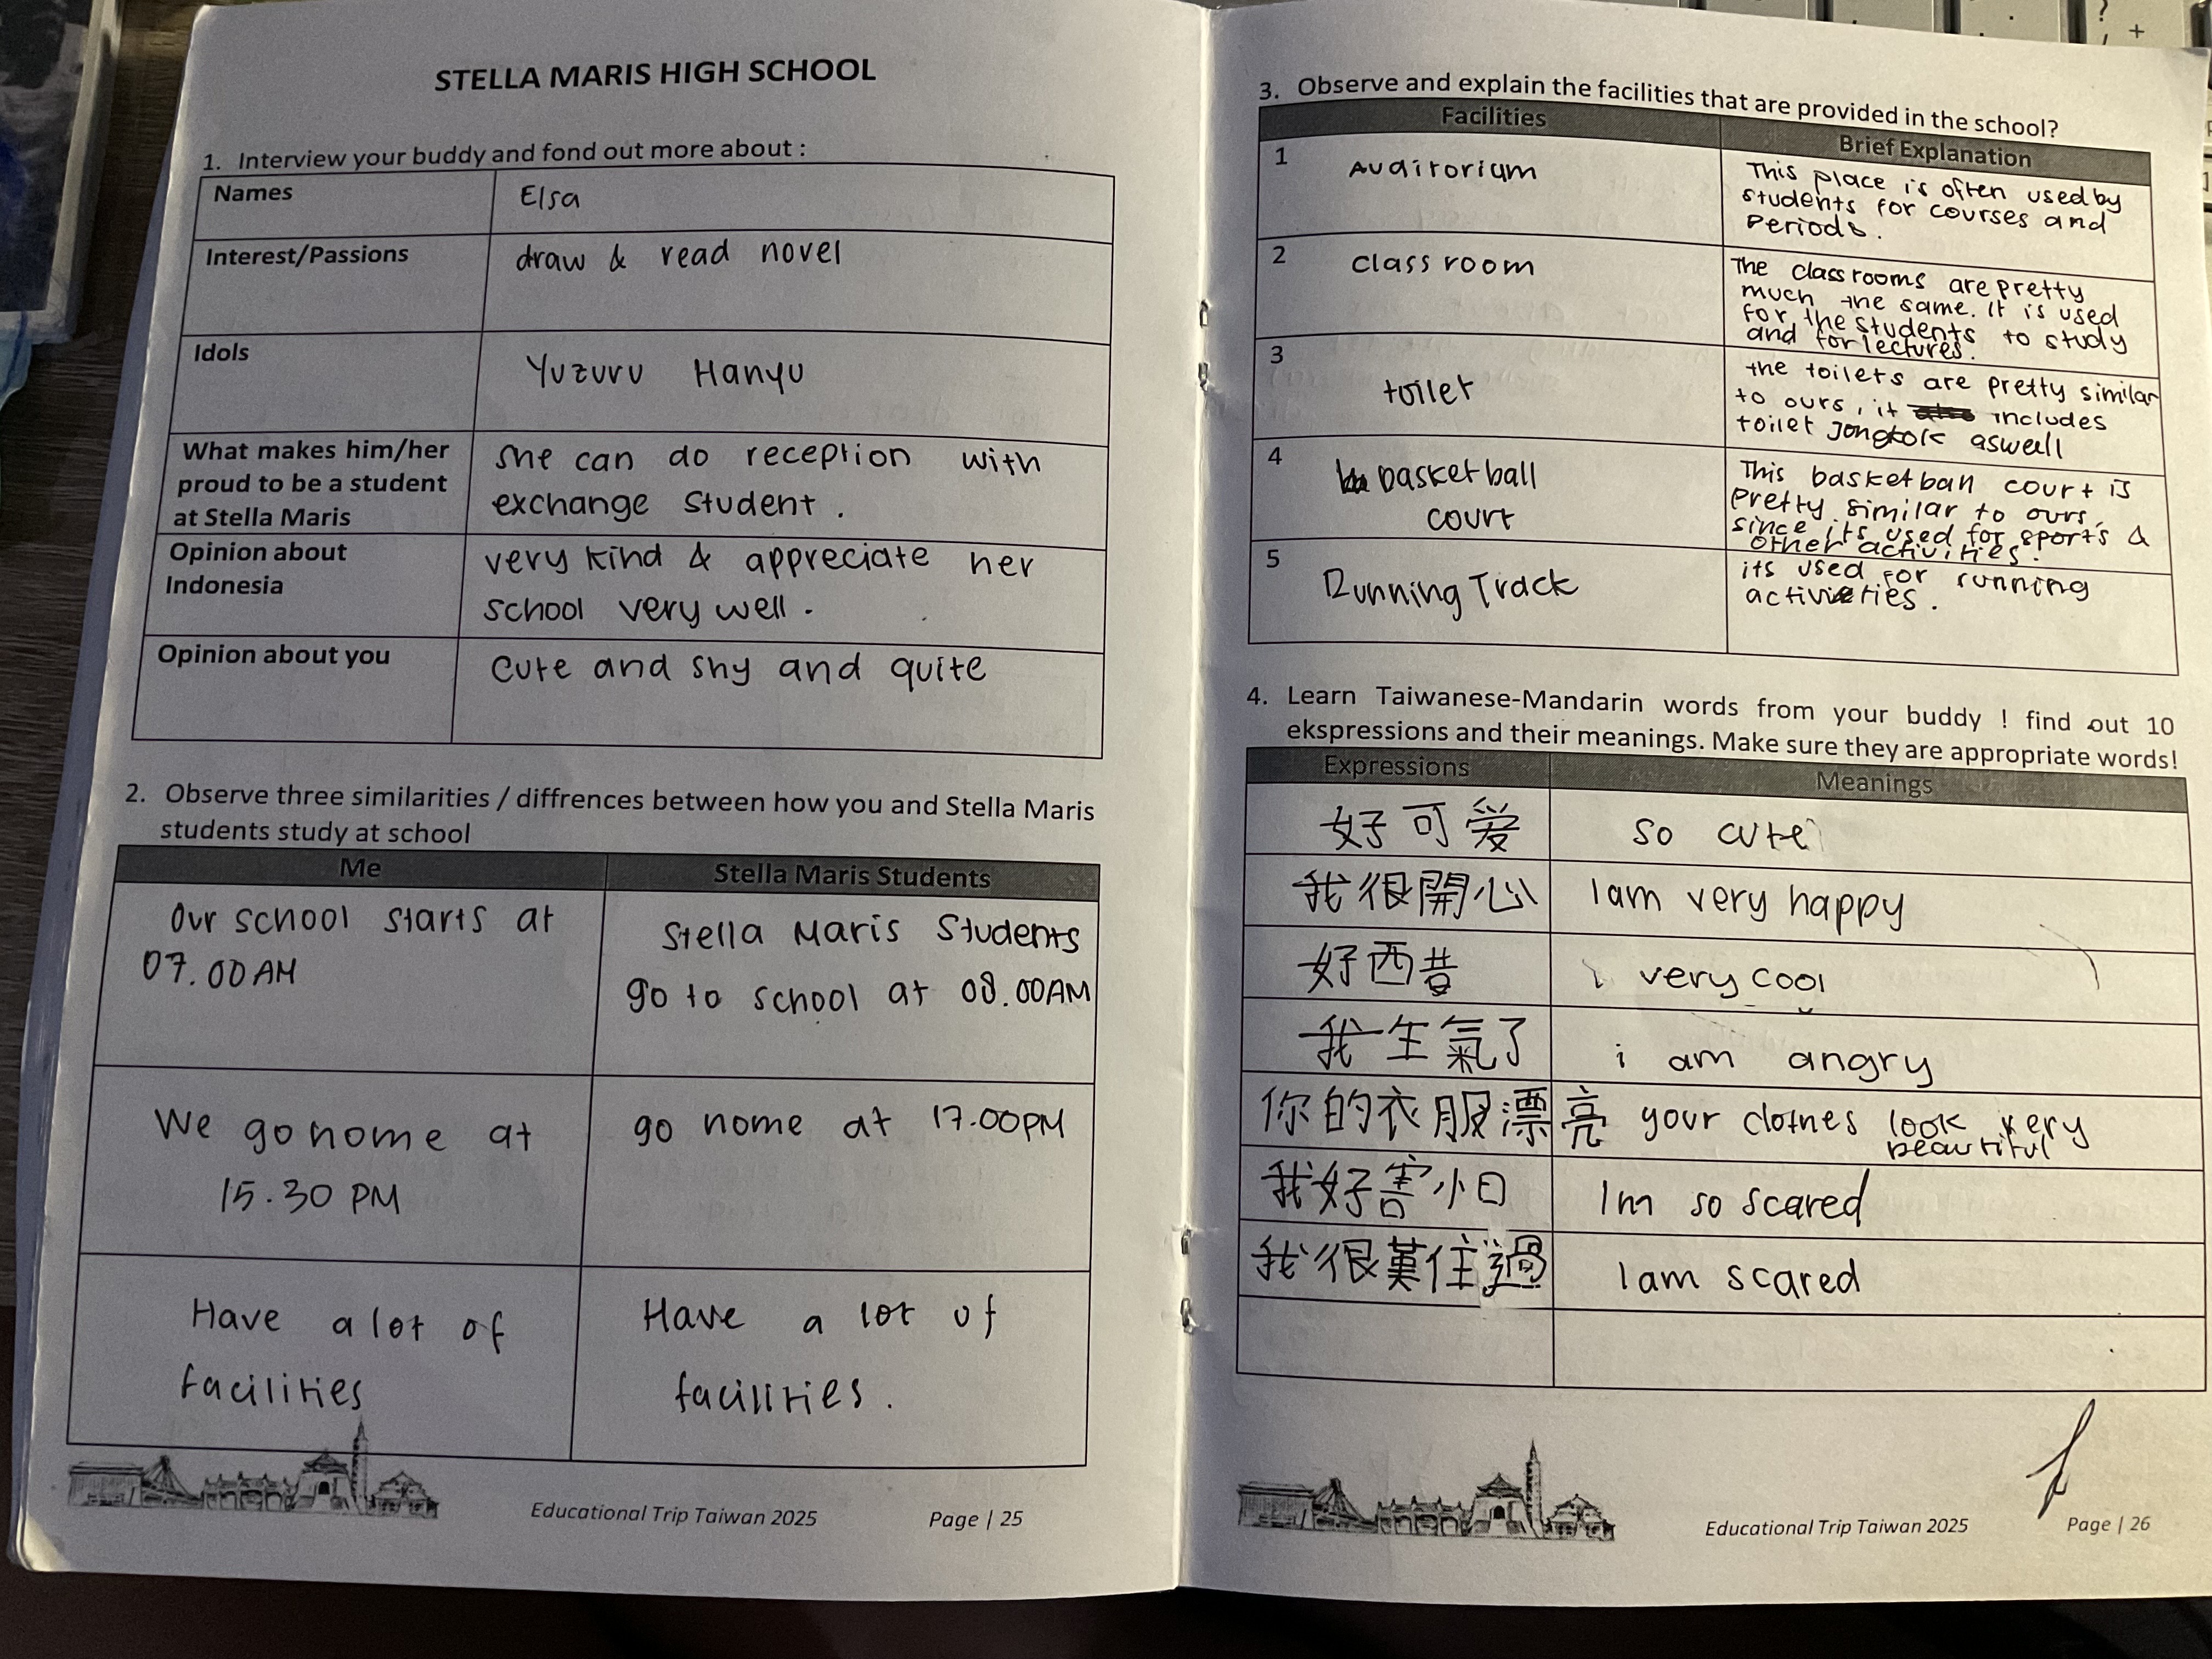 STELLA MARIS HIGH SCHOOL
1. Interview your buddy and fond out more about :
Names
Elsa
Interest/Passions
draw & read novel
Idols
Yuzuru Hanyu
What makes him/her
proud to be a student
at Stella Maris
she can do reception with
exchange student .
Opinion about
Indonesia
very kind & appreciate her
school very well .
Opinion about you
cute and shy and quite
2. Observe three similarities / diffrences between how you and Stella Maris
students study at school
Me
Stella Maris Students
Our school starts at
07.00AM
Stella Maris Students
go to school at 08.00AM
We go home at
15.30 PM
go home at 17.00PM
Have a lot of
facilities
Have a lot of
facilities.
Educational Trip Taiwan 2025
Page | 25
3. Observe and explain the facilities that are provided in the school?
Facilities
Brief Explanation
1
Auditorium
This place is often used by
students for courses and
Periods.
2
classroom
The classrooms are pretty
much the same. It is used
for the students to study
and for lectures.
3
toilet
the toilets are pretty similar
to ours, it includes
toilet Jongkok aswell
4
basketball
court
This basketball court is
pretty similar to ours,
since its used for sports &
other activities.
5
Running Track
its used for running
activities.
4. Learn Taiwanese-Mandarin words from your buddy ! find out 10
ekspressions and their meanings. Make sure they are appropriate words!
Expressions
Meanings
好可爱
so cute
我很開心
I am very happy
好西昔
very cool
我生氣了
i am angry
你的衣服漂亮
your clothes look very
beautiful
我好害小白
Im so scared
我很過
I am scared
Educational Trip Taiwan 2025
Page | 26